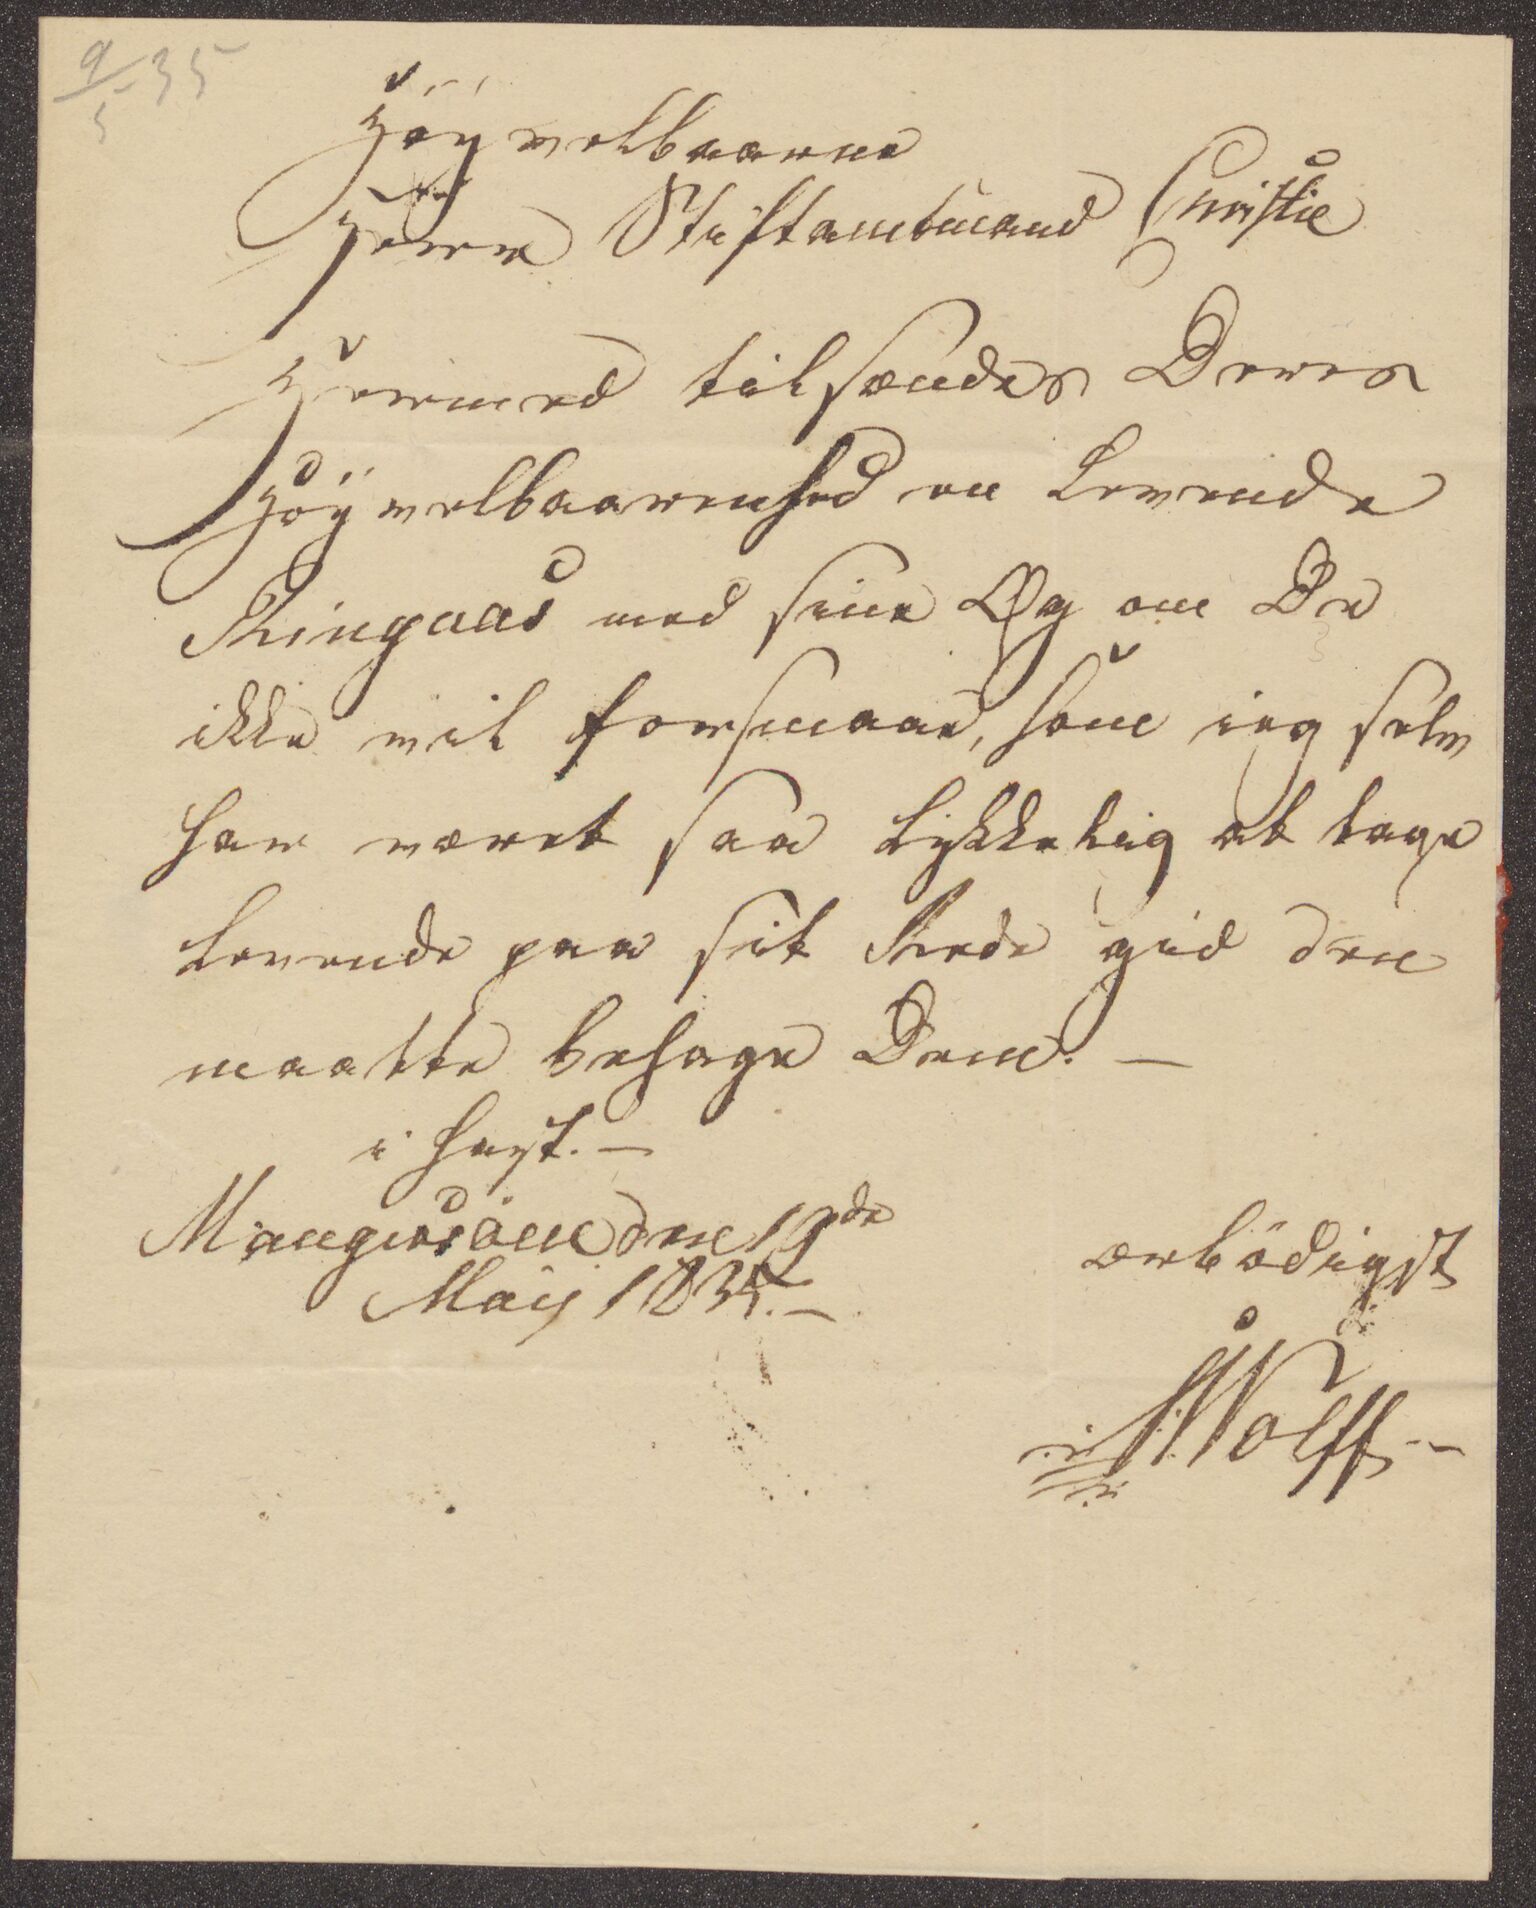 9/5 35
Höÿvelbaarne
Herre Stiftamtmand Christie
Hermed tilsændes Deres
Höÿvelbaarenhed en Levende
Ringaas med sine Æg om De
ikke vil forsmaae, som ieg selv
har været saa Lykkelig at tage
Levende paa sit Rede gid den
maatte behage Dem. —
i Hast. —
Mangersöen den 19de
Maij 1835. —
ærbödigst
Wolff. —